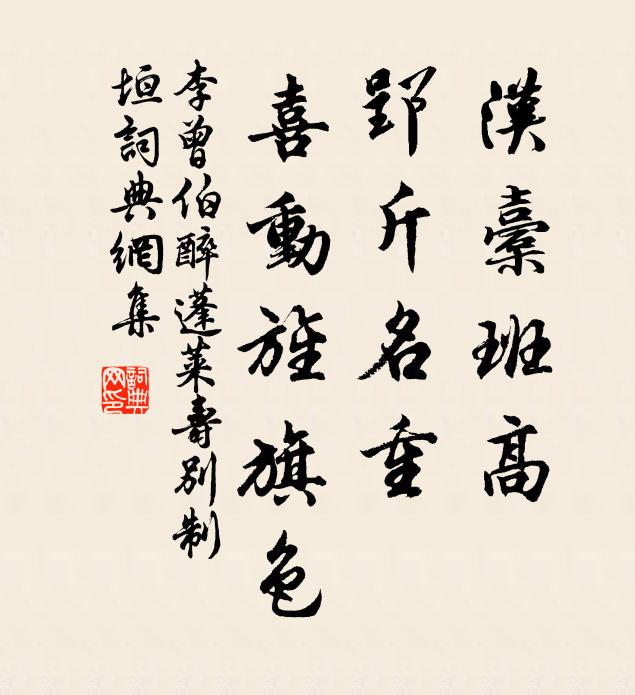 漢櫜班高
郢斤名重
喜動旌旗色
李曾伯醉蓬萊壽別制
垣詞典網集
詞典網印